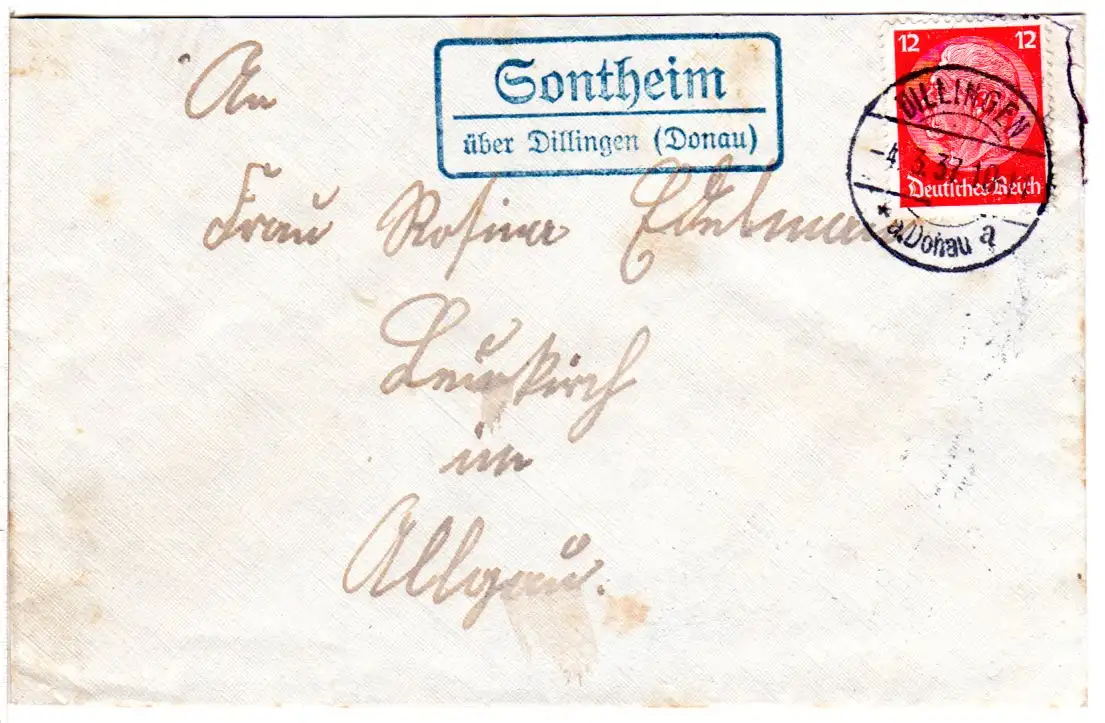 Sontheim
über Dillingen (Donau)
12 12
Deutsches Reich
DILLINGEN
-4. 3. 37
* a. Donau a
An
Frau Rosina
Leutkirch
im
Allgäu.